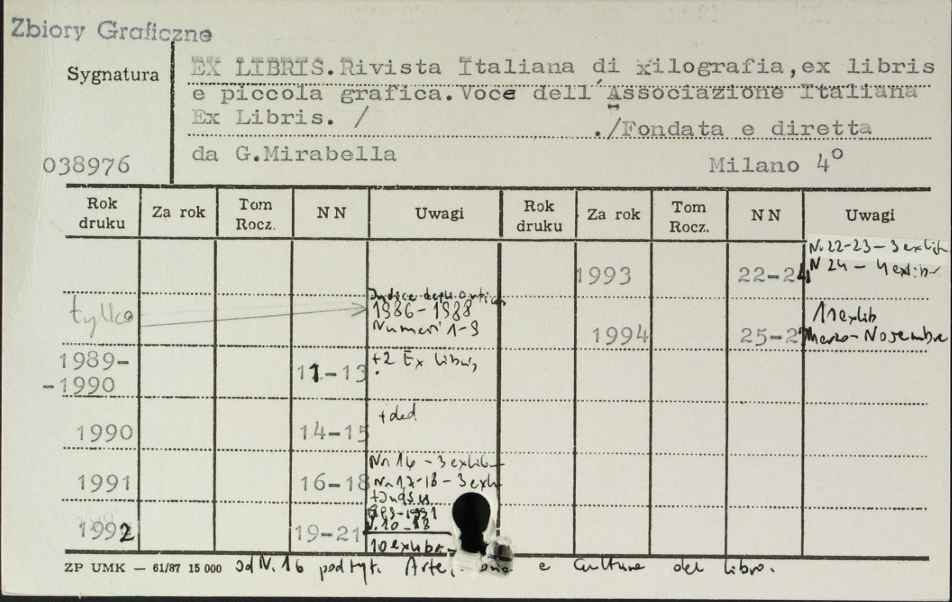 Zbiory Graficzne
Sygnatura
EX LIBRIS.Rivista Italiana di xilografia,ex libris
e piccola grafica.Voce dell'Associazione Italiana
Ex Libris. / ./Fondata e diretta
da G.Mirabella Milano 4°
038976
Rok druku Za rok Tom Rocz. NN Uwagi Rok druku Za rok Tom Rocz. NN Uwagi
1993 22-24 N.22-23 - 3 exlib
N 24 - 4 exlibr
tylko Indice degli
1986-1988
Numeri 1-9
1994 25-2 11 exlib
Marzo-Novembre
1989-
-1990 11-13 +2 Ex libris
1990 14-15 + ded.
1991 16-18 Nr 16 - 3 exlib
Nr 17-18 - 3 exl
1992 19-21 10 exlibr.
ZP UMK — 61/87 15 000 od N. 16 podtyt. Arte, e Cultura del libro.